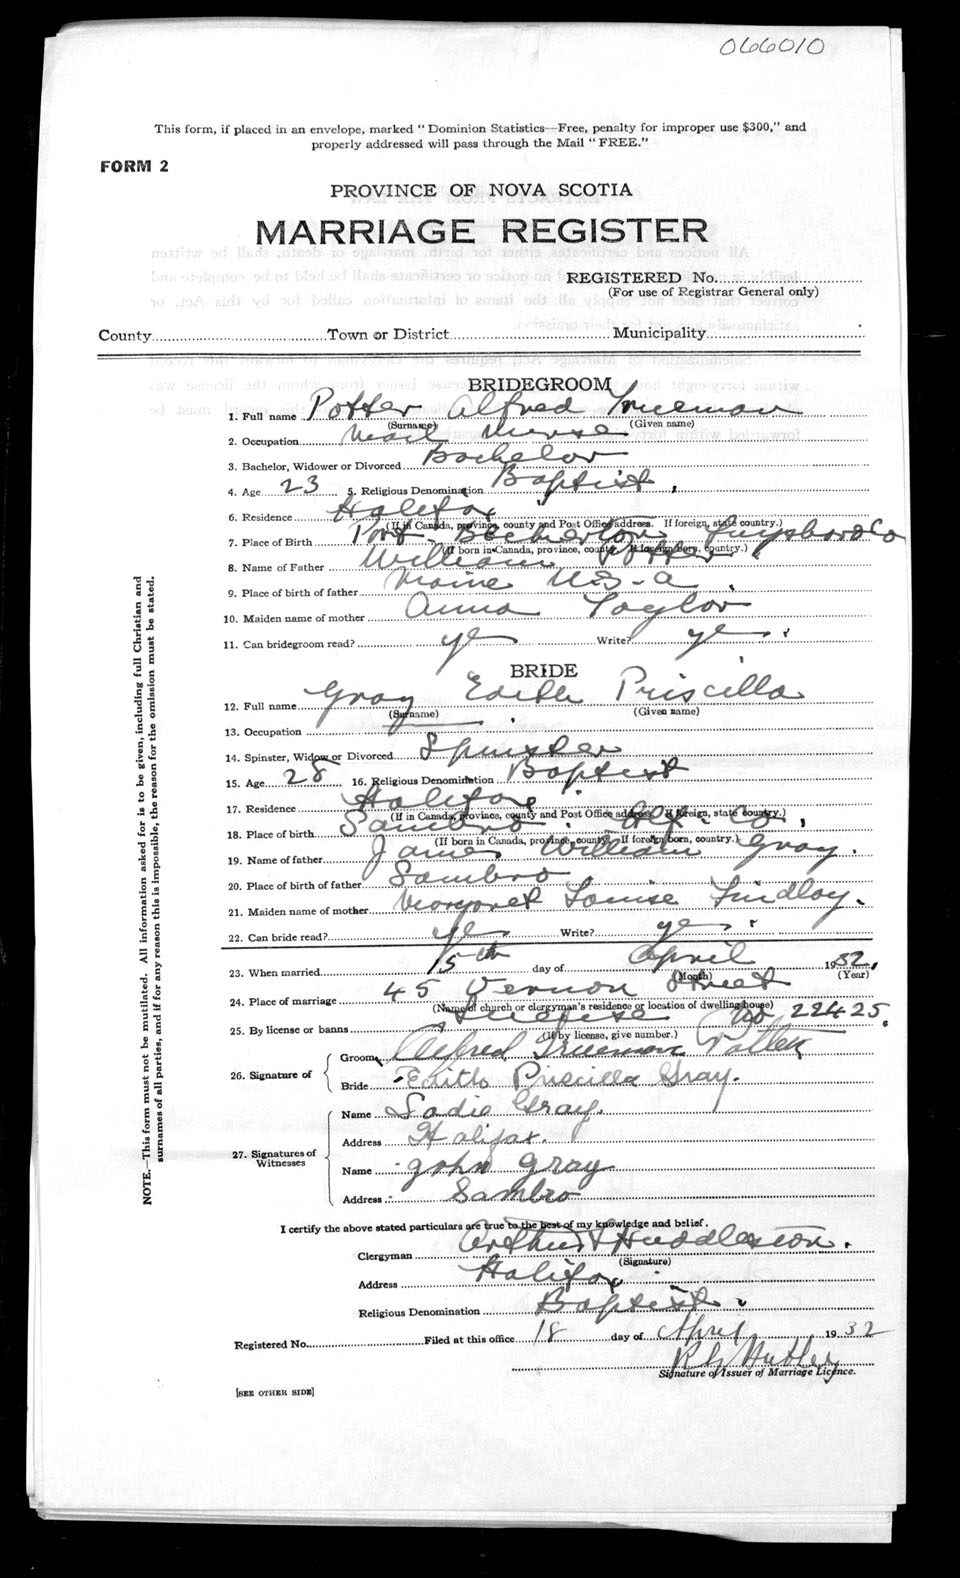 066010
This form, if placed in an envelope, marked "Dominion Statistics—Free, penalty for improper use $300," and
properly addressed will pass through the Mail "FREE."
FORM 2
PROVINCE OF NOVA SCOTIA
MARRIAGE REGISTER
REGISTERED No.
(For use of Registrar General only)
County Town or District Municipality
BRIDEGROOM
1. Full name Potter Alfred Trueman
(Surname) (Given name)
2. Occupation Mail Nurse
3. Bachelor, Widower or Divorced Bachelor
4. Age 23 5. Religious Denomination Baptist
6. Residence Halifax
(If in Canada, province, county and Post Office address. If foreign, state country.)
7. Place of Birth Port Guysboro Co
(If born in Canada, province, county. If foreign born, country.)
8. Name of Father William Potter
9. Place of birth of father Maine U.S-a.
10. Maiden name of mother Anna Taylor
11. Can bridegroom read? yes Write? yes.
BRIDE
12. Full name Gray Edith Priscilla
(Surname) (Given name)
13. Occupation
14. Spinster, Widow or Divorced Spinster
15. Age 28 16. Religious Denomination Baptist
17. Residence Halifax
(If in Canada, province, county and Post Office address. If foreign, state country.)
18. Place of birth Sambro. Hfx. Co.
(If born in Canada, province, county. If foreign born, country.)
19. Name of father James William Gray.
20. Place of birth of father Sambro
21. Maiden name of mother Margaret Louise Findlay.
22. Can bride read? yes Write? yes.
23. When married 15th day of April 1932.
(Month) (Year)
24. Place of marriage 45 Vernon Street
(Name of church or clergyman's residence or location of dwelling house)
25. By license or banns License No 22425.
(If by license, give number.)
26. Signature of
Groom Alfred Trueman Potter
Bride Edith Priscilla Gray.
27. Signatures of Witnesses
Name Sadie Gray.
Address Halifax.
Name John Gray
Address Sambro
I certify the above stated particulars are true to the best of my knowledge and belief.
Clergyman Arthur Huddleston.
(Signature)
Address Halifax
Religious Denomination Baptist.
Registered No. Filed at this office 18 day of April 1932
Signature of Issuer of Marriage Licence.
[SEE OTHER SIDE]
NOTE.—This form must not be mutilated. All information asked for is to be given, including full Christian and
surnames of all parties, and if for any reason this is impossible, the reason for the omission must be stated.